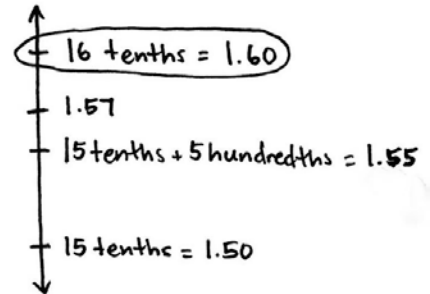 16 tenths = 1.60
1.57
15 tenths + 5 hundredths = 1.55
15 tenths = 1.50